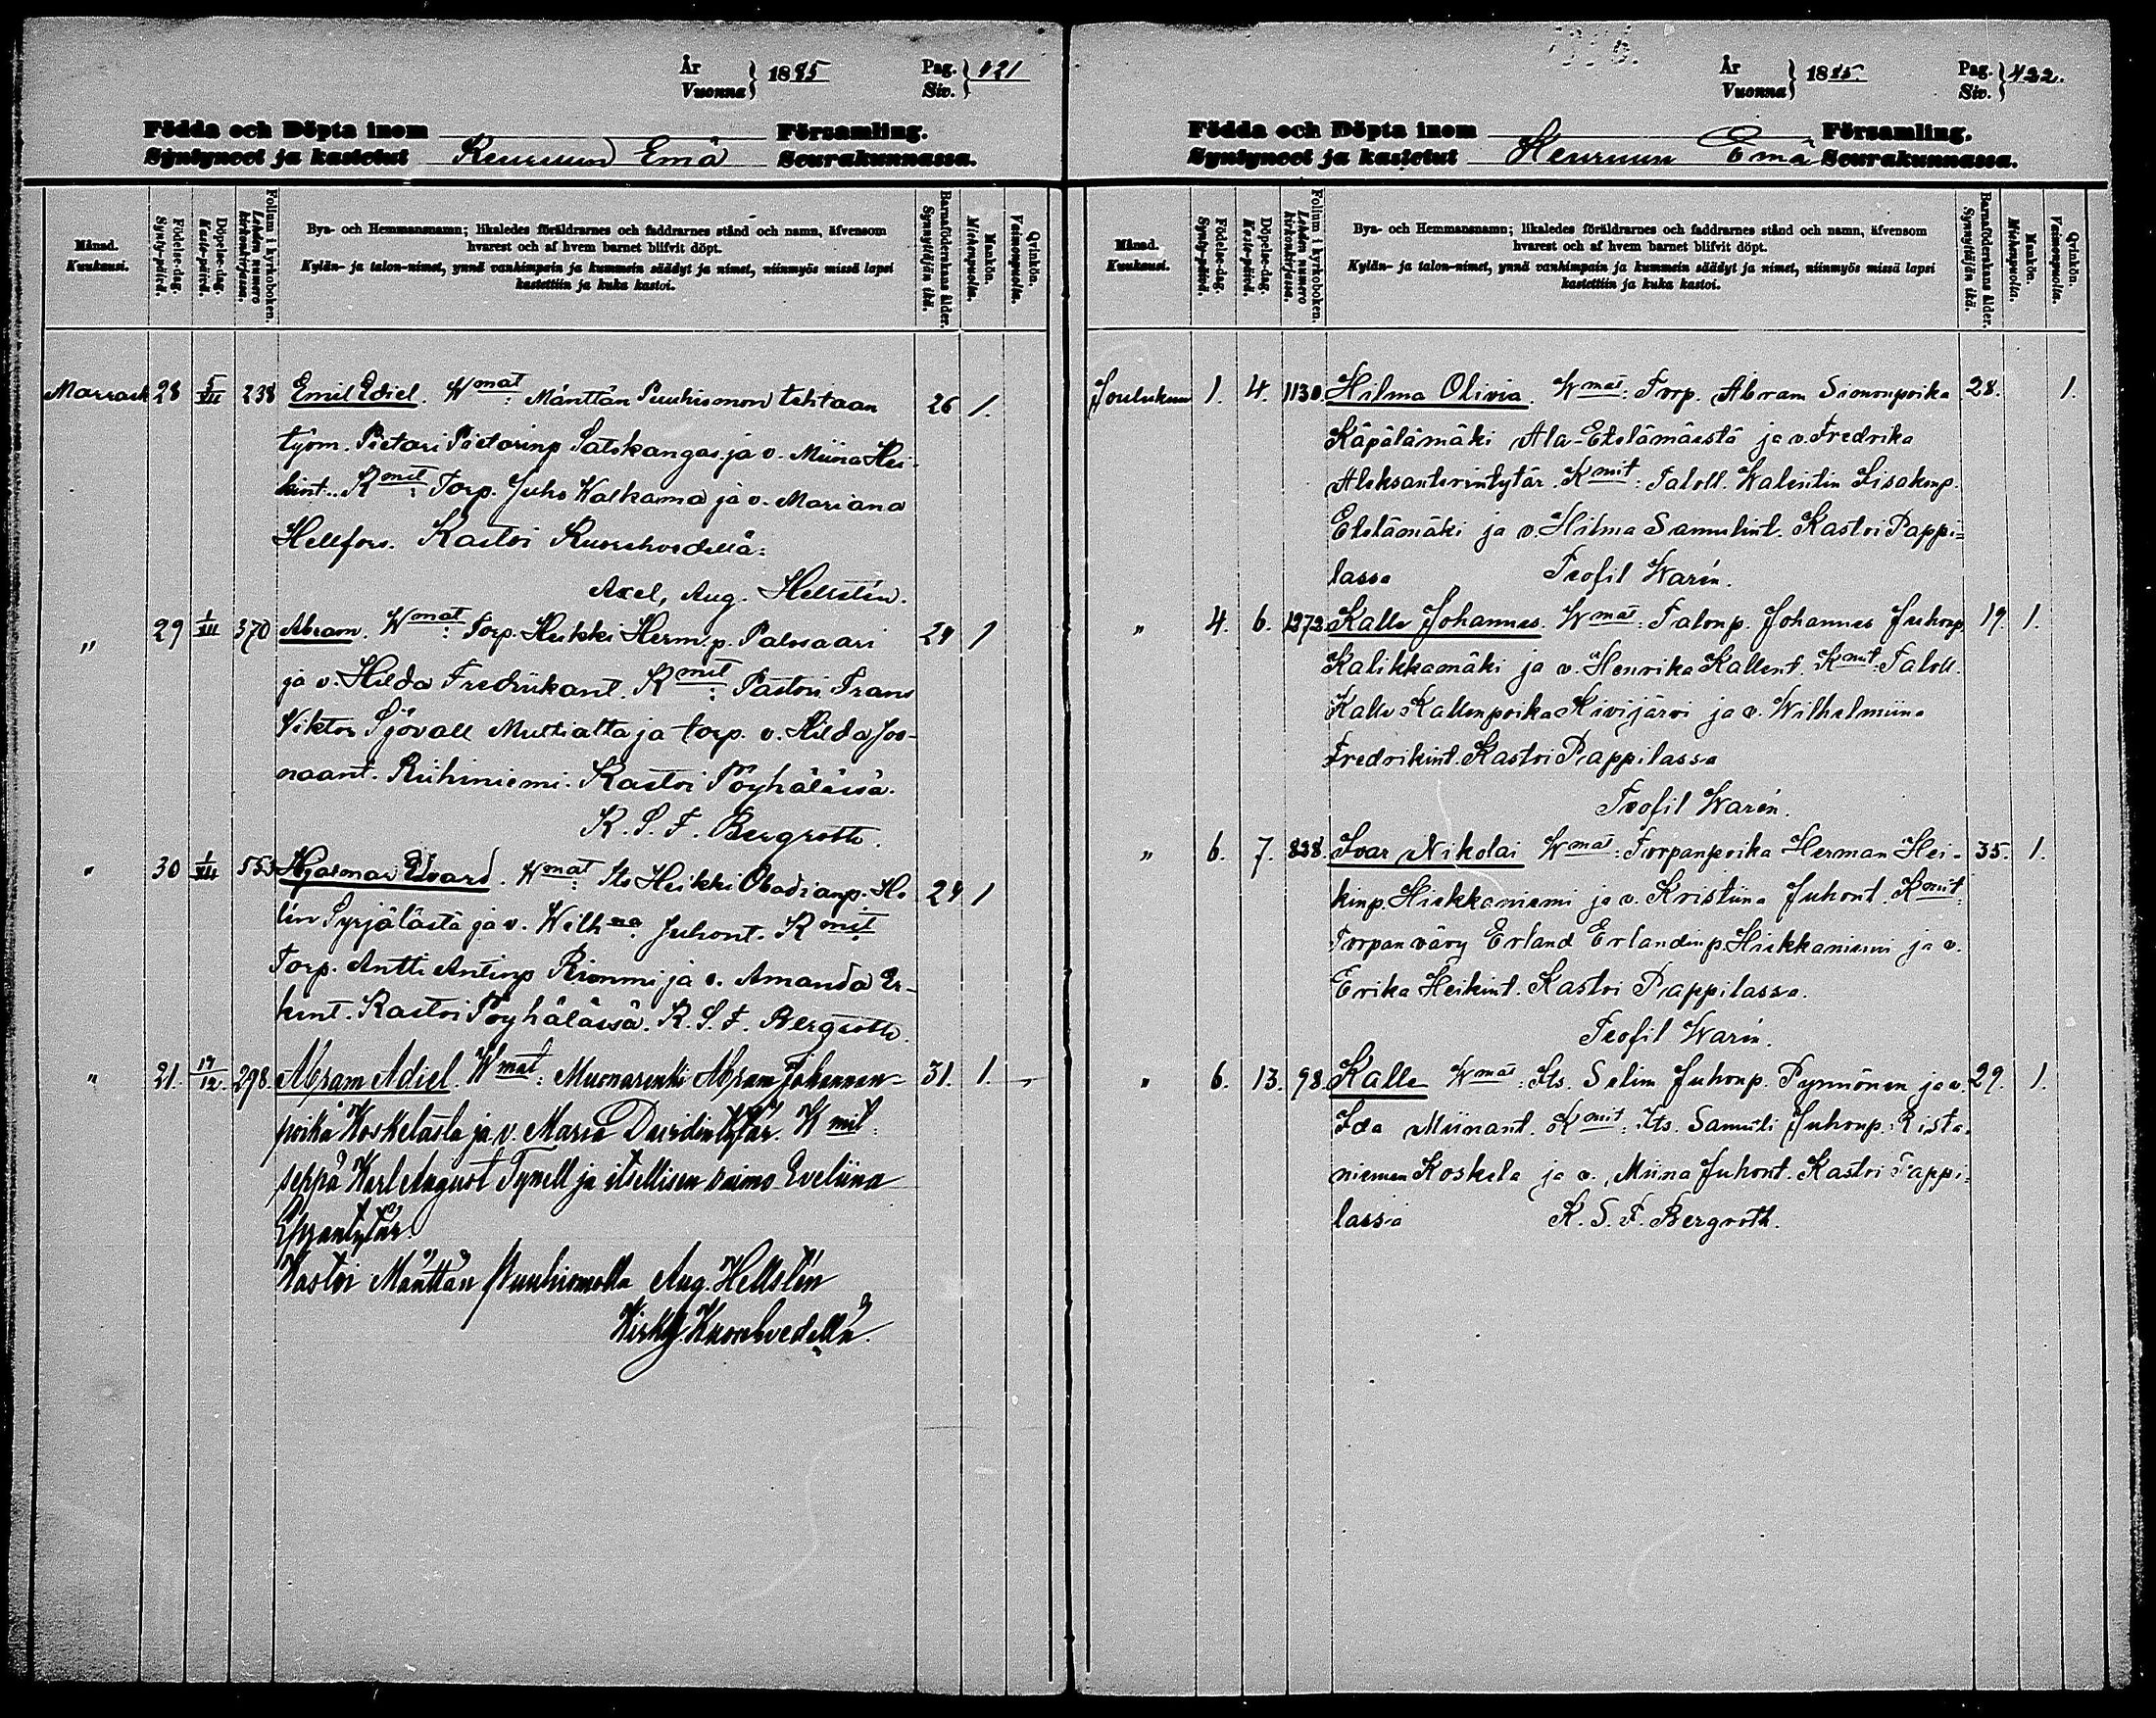 År
Vuonna } 1885 Pag.
Siv. } 421
Födda och Döpta inom Församling.
Syntyneet ja kastetut Keuruun Emä Seurakunnassa.
Månad.
Kuukausi.
Födelse-dag.
Synty-päivä.
Döpelse-dag.
Kaste-päivä.
Folium i kyrkoboken.
Lehden numero kirkonkirjassa.
Bya- och Hemmansnamn; likaledes föräldrarnes och faddrarnes stånd och namn, äfvensom
hvarest och af hvem barnet blifvit döpt.
Kylän- ja talon-nimet, ynnä vanhimpain ja kummein säädyt ja nimet, niinmyös missä lapsi
kastettiin ja kuka kastoi.
Barnaföderskans ålder.
Synnyttäjän ikä.
Mankön.
Miehenpuolia.
Qvinkön.
Vaimonpuolia.
Marrask 28 5/XII 238 Emil Ediel. Wmat: Mänttän Puuhiomon tehtaan 26 1.
työm. Pietari Pietarinp Salokangas ja v. Miina Hei-
kint. Kmit: Torp. Juho Walkama ja v. Mariana
Hellfors. Kastoi Kuorehvedellä:
Axel, Aug. Hellstén.
" 29 1/XII 370 Abram. Wmat: Torp. Heikki Herm. p. Palosaari 24 1
ja v. Hilda Fredrikant. Kmit: Pastori Frans
Viktor Sjövall Multialta ja torp. v. Hilda Joo-
naant. Riihiniemi. Kastoi Pöyhälässä.
K. S. F. Bergroth.
" 30 1/XII 553 Hjalmar Edvard. Wmat: Its Heikki Obadianp. Ho- 24 1
lin Syrjälästä ja v. Wilhna Juhont. Kmit
Torp. Antti Antinp ja v. Amanda Er-
kint. Kastoi Pöyhälässä. K. S. F. Bergroth.
" 21. 17/12. 298. Abram Adiel. Wmat: Muonarenki Abram Johannen- 31. 1. —
poika Koskelasta ja v. Maria Davidintytär. Kmit:
seppä Karl August Tynell ja itsellisen vaimo Eveliina
Kastoi Mänttän Puuhiomolla Aug. Hellstén
Kirkkh. Kuorehvedellä.
År
Vuonna } 1885 Pag.
Siv. } 422.
Födda och Döpta inom Församling.
Syntyneet ja kastetut Keuruun Emä Seurakunnassa.
Månad.
Kuukausi.
Födelse-dag.
Synty-päivä.
Döpelse-dag.
Kaste-päivä.
Folium i kyrkoboken.
Lehden numero kirkonkirjassa.
Bya- och Hemmansnamn; likaledes föräldrarnes och faddrarnes stånd och namn, äfvensom
hvarest och af hvem barnet blifvit döpt.
Kylän- ja talon-nimet, ynnä vanhimpain ja kummein säädyt ja nimet, niinmyös missä lapsi
kastettiin ja kuka kastoi.
Barnaföderskans ålder.
Synnyttäjän ikä.
Mankön.
Miehenpuolia.
Qvinkön.
Vaimonpuolia.
Joulukuu 1. 4. 1130. Hilma Olivia. Wmat: Torp. Abram Simonpoika 28. 1.
Käpälämäki Ala-Etelämäestä ja v. Fredrika
Aleksanterintytär. Kmit: Taloll. Walentin Iisakinp.
Etelämäki ja v. Hilma Samulint. Kastoi Pappi=
lassa Teofil Warén.
" 4. 6. 1272. Kalle Johannes. Wmat: Talonp. Johannes Juhonp. 19. 1.
Kalikkamäki ja v. Henrika Kallent. Kmit: Taloll.
Kalle Kallenpoika Kivijärvi ja v. Wilhelmiina
Fredrikint. Kastoi Pappilassa
Teofil Warén.
" 6. 7. 828. Ivar Nikolai Wmat: Torpanpoika Herman Hei- 35. 1.
kinp. Hiekkaniemi ja v. Kristiina Juhont. Kmit:
Torpan vävy Erland Erlandinp. Hiekkaniemi ja v.
Erika Heikint. Kastoi Pappilassa.
Teofil Warén.
" 6. 13. 98. Kalle Wmat: Its. Selim Juhonp. Pynnönen ja v. 29. 1.
Ida Miinant. Kmit: Its. Samuli Juhonp. Rista-
niemen Koskela ja v. Miina Juhont. Kastoi Pappi=
lassa K. S. F. Bergroth.